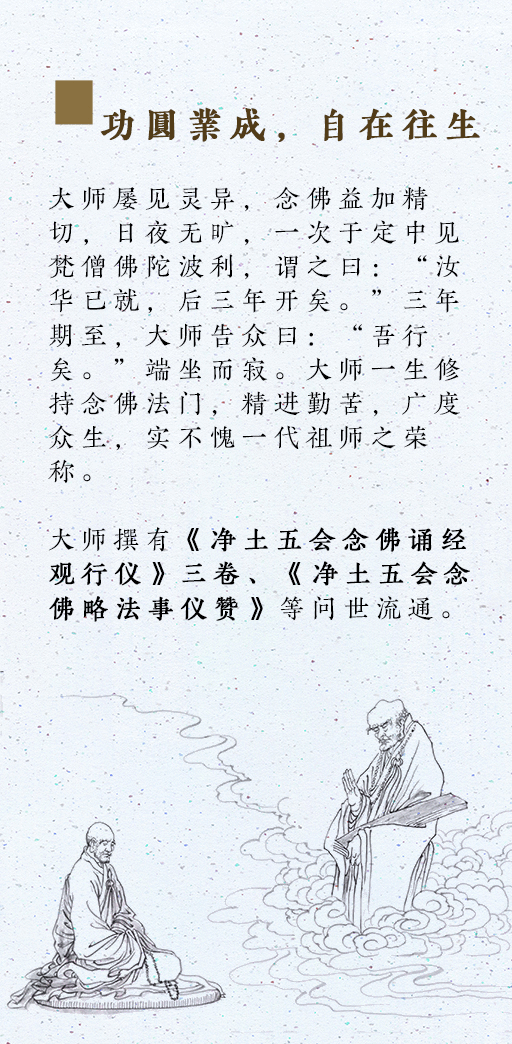 功圓業成，自在往生
大师屡见灵异，念佛益加精
切，日夜无旷，一次于定中见
梵僧佛陀波利，谓之曰：“汝
华已就，后三年开矣。”三年
期至，大师告众曰：“吾行
矣。”端坐而寂。大师一生修
持念佛法门，精进勤苦，广度
众生，实不愧一代祖师之荣
称。
大师撰有《净土五会念佛诵经
观行仪》三卷、《净土五会念
佛略法事仪赞》等问世流通。